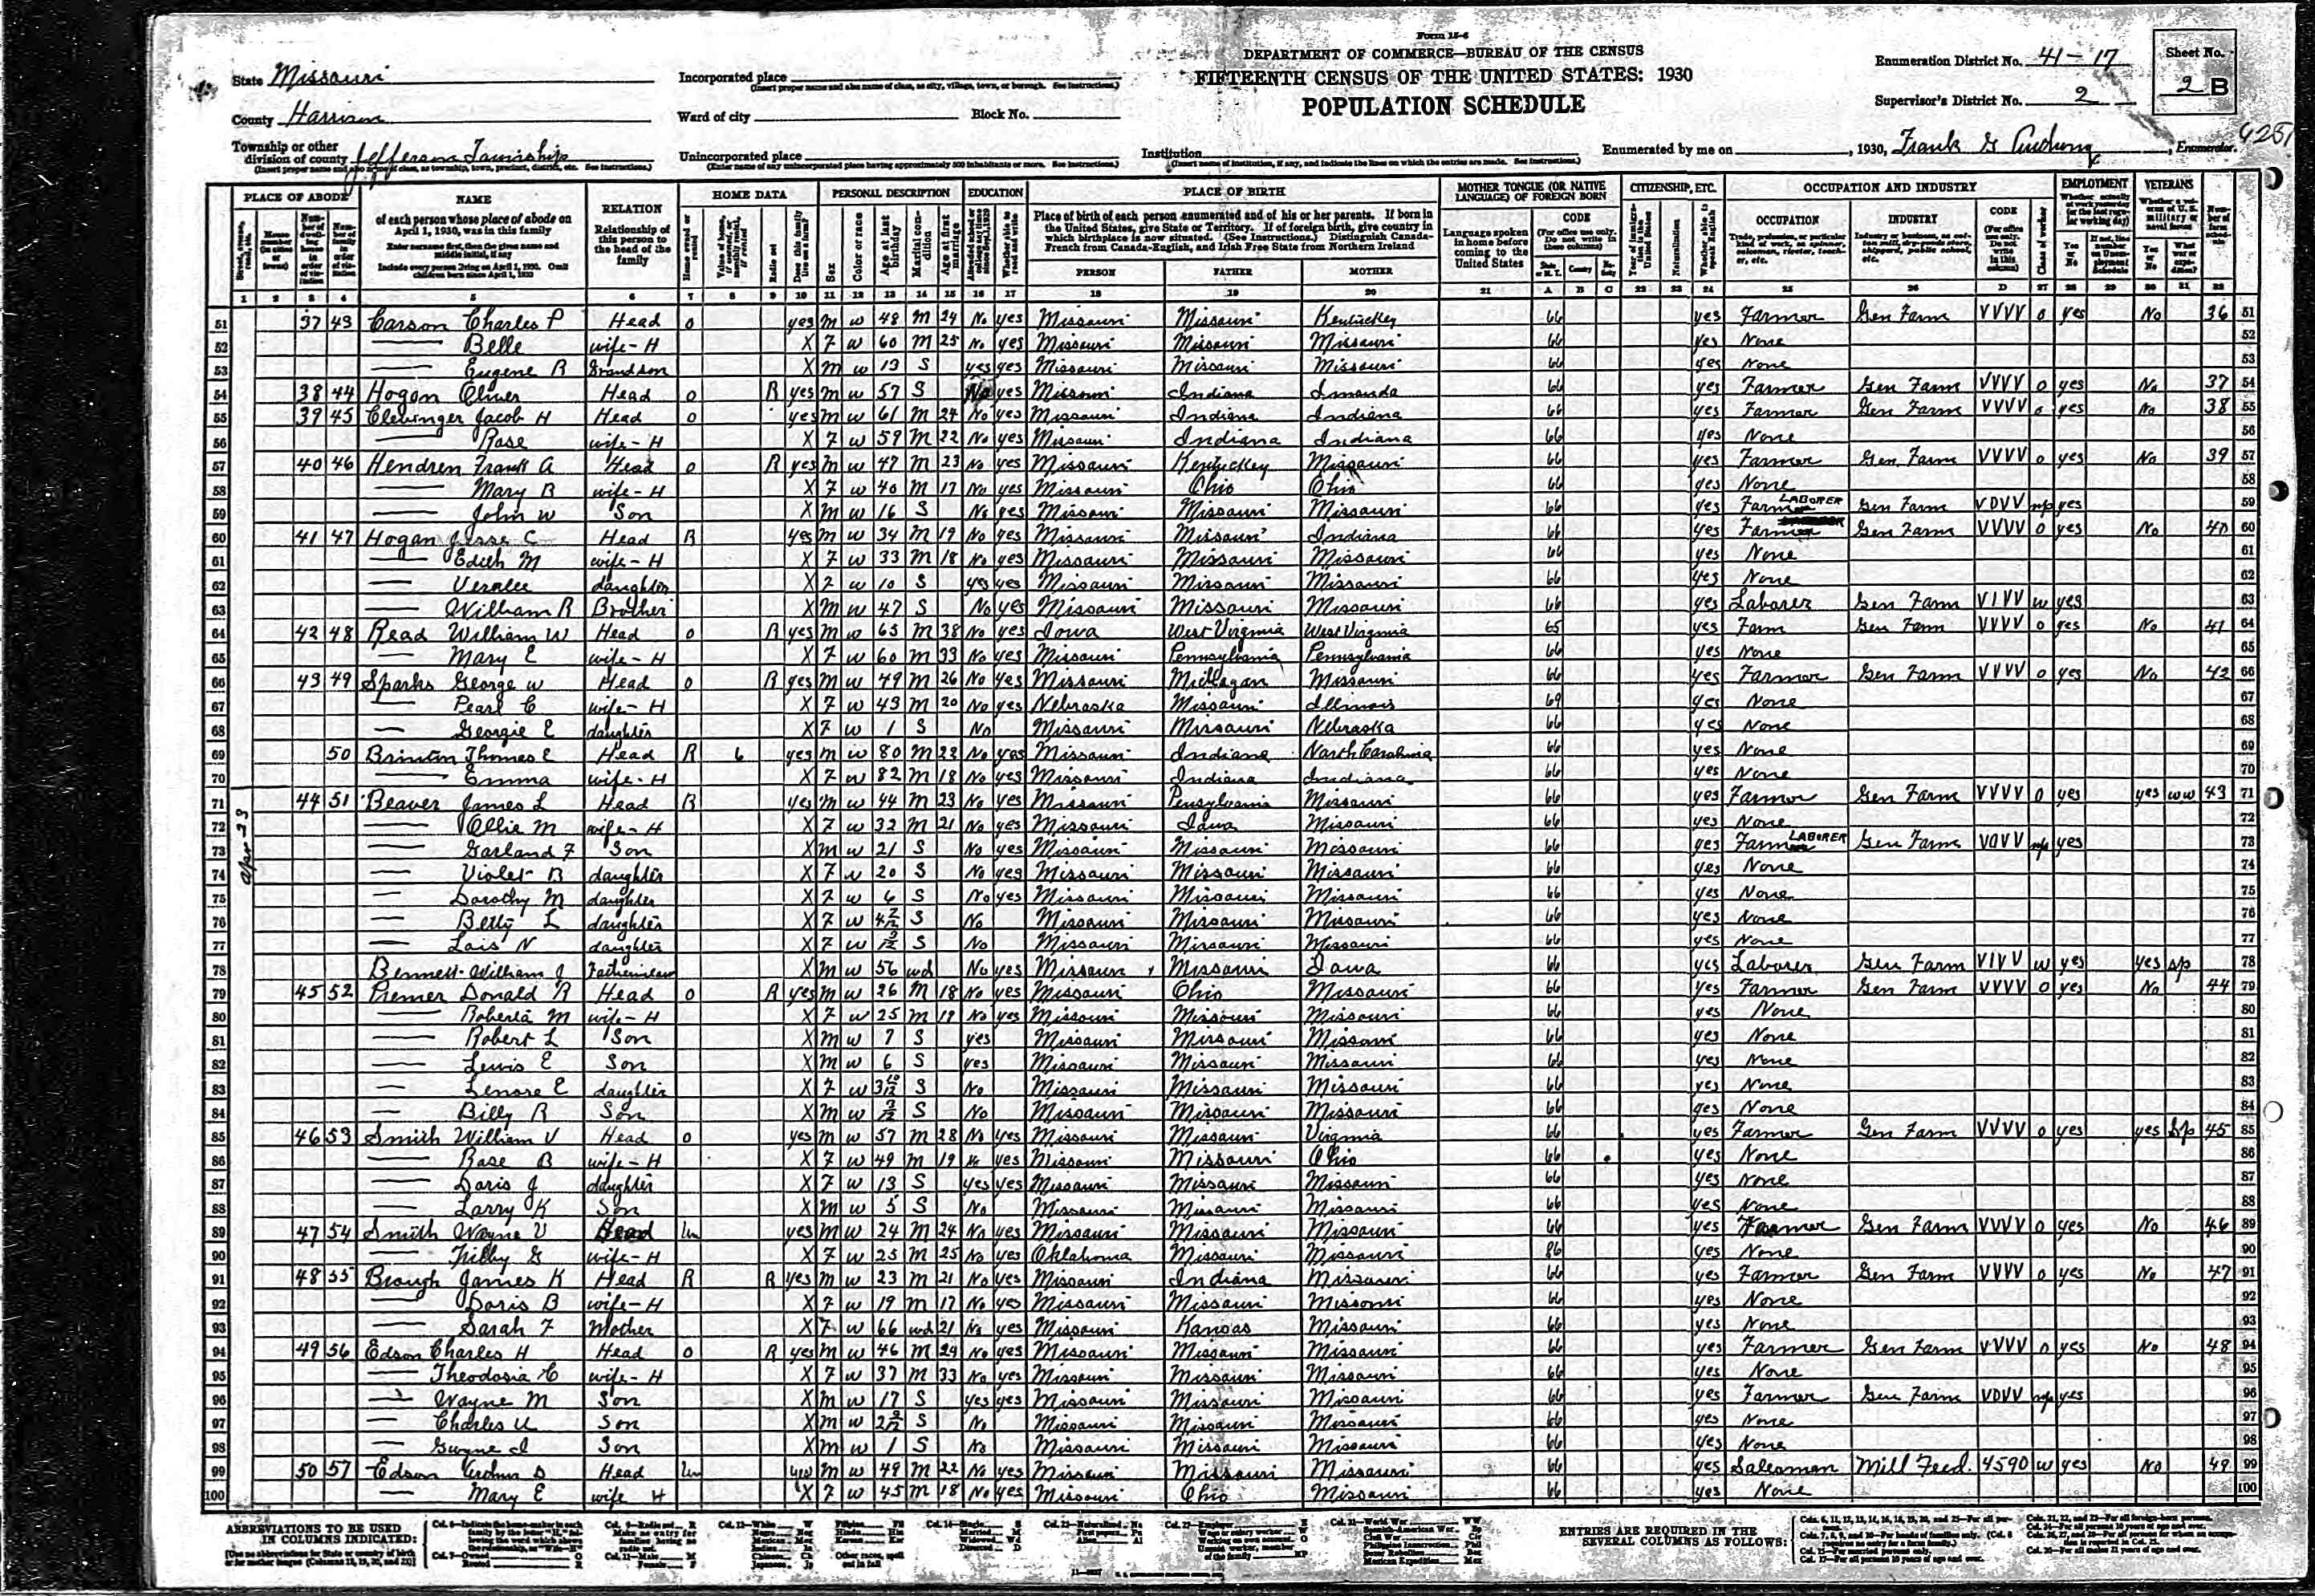 Form 15-6
DEPARTMENT OF COMMERCE—BUREAU OF THE CENSUS
FIFTEENTH CENSUS OF THE UNITED STATES: 1930
POPULATION SCHEDULE
State Missouri
County Harrison
Township or other division of county Jefferson Township
Incorporated place
(Insert proper name and also name of class, as city, village, town, or borough. See instructions.)
Ward of city Block No.
Unincorporated place
(Enter name of any unincorporated place having approximately 500 inhabitants or more. See instructions.)
Institution
(Insert name of institution, if any, and indicate the lines on which the entries are made. See instructions.)
Enumeration District No. 41-17
Supervisor's District No. 2
Sheet No. 2 B
Enumerated by me on , 1930, Frank , Enumerator.
PLACE OF ABODE NAME RELATION HOME DATA PERSONAL DESCRIPTION EDUCATION PLACE OF BIRTH MOTHER TONGUE (OR NATIVE LANGUAGE) OF FOREIGN BORN CITIZENSHIP, ETC. OCCUPATION AND INDUSTRY EMPLOYMENT VETERANS
of each person whose place of abode on April 1, 1930, was in this family
Relationship of this person to the head of the family
Place of birth of each person enumerated and of his or her parents. If born in the United States, give State or Territory. If of foreign birth, give country in which birthplace is now situated. (See Instructions.) Distinguish Canada-French from Canada-English, and Irish Free State from Northern Ireland
PERSON FATHER MOTHER
Language spoken in home before coming to the United States
CODE OCCUPATION INDUSTRY CODE
1 2 3 4 5 6 7 8 9 10 11 12 13 14 15 16 17 18 19 20 21 A B C 22 23 24 25 26 D 27 28 29 30 31 32
51 37 43 Carson Charles P Head O yes M W 48 M 24 No yes Missouri Missouri Kentuckey 66 yes Farmer Gen Farm VVVV O yes No 36 51
52 Belle wife-H X F W 60 M 25 No yes Missouri Missouri Missouri 66 yes None 52
53 Eugene R Grandson X M W 13 S yes yes Missouri Missouri Missouri 66 yes None 53
54 38 44 Hogan Oliver Head O R yes M W 57 S No yes Missouri Indiana 66 yes Farmer Gen Farm VVVV O yes No 37 54
55 39 45 Clevinger Jacob H Head O yes M W 61 M 24 No yes Missouri Indiana Indiana 66 yes Farmer Gen Farm VVVV O yes No 38 55
56 Rose wife-H X F W 59 M 22 No yes Missouri Indiana Indiana 66 yes None 56
57 40 46 Hendren Frank A Head O R yes M W 47 M 23 No yes Missouri Kentuckey Missouri 66 yes Farmer Gen Farm VVVV O yes No 39 57
58 Mary B wife-H X F W 40 M 17 No yes Missouri Ohio Ohio 66 yes None 58
59 John W Son X M W 16 S No yes Missouri Missouri Missouri 66 yes Farm LABORER Gen Farm VDVV np yes 59
60 41 47 Hogan Jesse C Head R yes M W 34 M 19 No yes Missouri Missouri Indiana 66 yes Farmer Gen Farm VVVV O yes No 40 60
61 Edith M wife-H X F W 33 M 18 No yes Missouri Missouri Missouri 66 yes None 61
62 Veralee daughter X F W 10 S yes yes Missouri Missouri Missouri 66 yes None 62
63 William R Brother X M W 47 S No yes Missouri Missouri Missouri 66 yes Laborer Gen Farm VIVV W yes 63
64 42 48 Read William W Head O R yes M W 65 M 38 No yes Iowa West Virginia West Virginia 65 yes Farm Gen Farm VVVV O yes No 41 64
65 Mary E wife-H X F W 60 M 33 No yes Missouri Pennsylvania Pennsylvania 66 yes None 65
66 43 49 Sparks George W Head O R yes M W 49 M 26 No yes Missouri Michagan Missouri 66 yes Farmer Gen Farm VVVV O yes No 42 66
67 Pearl C wife-H X F W 43 M 20 No yes Nebraska Missouri Illinois 69 yes None 67
68 Georgie E daughter X F W 1 S No Missouri Missouri Nebraska 66 yes None 68
69 50 Brinton Thomas E Head R 6 yes M W 80 M 22 No yes Missouri Indiana North Carolina 66 yes None 69
70 Emma wife-H X F W 82 M 18 No yes Missouri Indiana Indiana 66 yes None 70
Apr 23
71 44 51 Beaver James L Head R yes M W 44 M 23 No yes Missouri Pensylvania Missouri 66 yes Farmer Gen Farm VVVV O yes yes WW 43 71
72 Ollie M wife-H X F W 32 M 21 No yes Missouri Iowa Missouri 66 yes None 72
73 Garland F Son X M W 21 S No yes Missouri Missouri Missouri 66 yes Farm LABORER Gen Farm VDVV np yes 73
74 Violet B daughter X F W 20 S No yes Missouri Missouri Missouri 66 yes None 74
75 Dorothy M daughter X F W 6 S No yes Missouri Missouri Missouri 66 yes None 75
76 Betty L daughter X F W S No Missouri Missouri Missouri 66 yes None 76
77 Lois N daughter X F W S No Missouri Missouri Missouri 66 yes None 77
78 Bennett William J Fatherinlaw X M W 56 wd No yes Missouri Missouri Iowa 66 yes Laborer Gen Farm VIVV W yes yes Sp 78
79 45 52 Premer Donald R Head O R yes M W 26 M 18 No yes Missouri Ohio Missouri 66 yes Farmer Gen Farm VVVV O yes No 44 79
80 Roberta M wife-H X F W 25 M 18 No yes Missouri Missouri Missouri 66 yes None 80
81 Robert L Son X M W 7 S yes Missouri Missouri Missouri 66 yes None 81
82 Lewis E Son X M W 6 S yes Missouri Missouri Missouri 66 yes None 82
83 Lenore E daughter X F W 3 10/12 S No Missouri Missouri Missouri 66 yes None 83
84 Billy R Son X M W S No Missouri Missouri Missouri 66 yes None 84
85 46 53 Smith William V Head O yes M W 57 M 28 No yes Missouri Missouri Virginia 66 yes Farmer Gen Farm VVVV O yes yes Sp 45 85
86 Rose B wife-H X F W 49 M 19 No yes Missouri Missouri Ohio 66 yes None 86
87 Doris J daughter X F W 13 S yes yes Missouri Missouri Missouri 66 yes None 87
88 Larry K Son X M W 5 S No Missouri Missouri Missouri 66 yes None 88
89 47 54 Smith Wayne V Head Un yes M W 24 M 24 No yes Missouri Missouri Missouri 66 yes Farmer Gen Farm VVVV O yes No 46 89
90 G wife-H X F W 25 M 25 No yes Oklahoma Missouri Missouri 86 yes None 90
91 48 55 Brough James K Head R R yes M W 23 M 21 No yes Missouri Indiana Missouri 66 yes Farmer Gen Farm VVVV O yes No 47 91
92 Doris B wife-H X F W 19 M 17 No yes Missouri Missouri Missouri 66 yes None 92
93 Sarah F Mother X F W 66 wd 21 No yes Missouri Kansas Missouri 66 yes None 93
94 49 56 Edson Charles H Head O R yes M W 46 M 24 No yes Missouri Missouri Missouri 66 yes Farmer Gen Farm VVVV O yes No 48 94
95 Theodosia C wife-H X F W 37 M 33 No yes Missouri Missouri Missouri 66 yes None 95
96 Wayne M Son X M W 17 S yes yes Missouri Missouri Missouri 66 yes Farmer Gen Farm VDVV np yes 96
97 Charles U Son X M W S No Missouri Missouri Missouri 66 yes None 97
98 Son X M W 1 S No Missouri Missouri Missouri 66 yes None 98
99 50 57 Edson D Head Un M W 49 M 22 No yes Missouri Missouri Missouri 66 yes Salesman Mill Feed 4590 W yes No 49 99
100 Mary E wife H X F W 45 M 18 No yes Missouri Ohio Missouri 66 yes None 100
ABBREVIATIONS TO BE USED IN COLUMNS INDICATED:
ENTRIES ARE REQUIRED IN THE SEVERAL COLUMNS AS FOLLOWS: